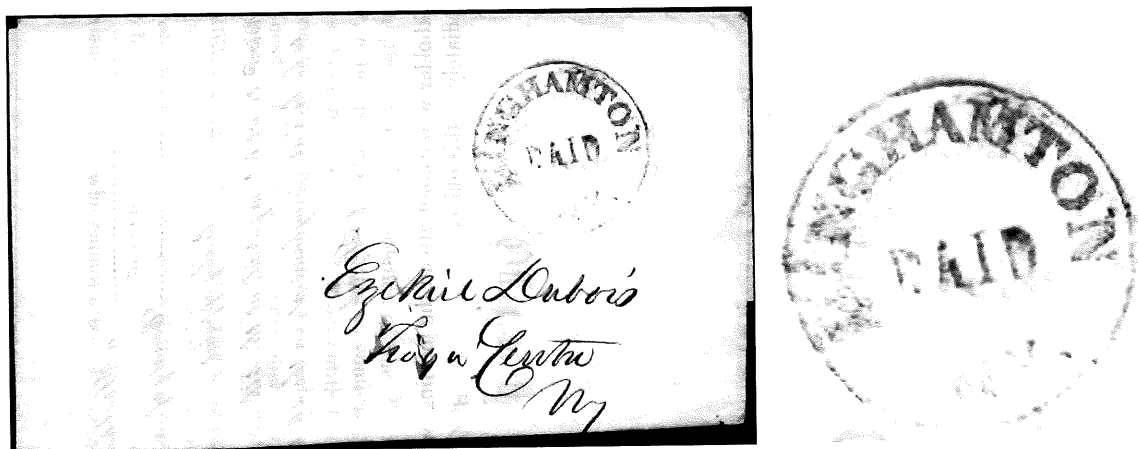 BINGHAMTON
PAID
Ezekiel Dubois
Tioga Centre
Ny
BINGHAMTON
PAID